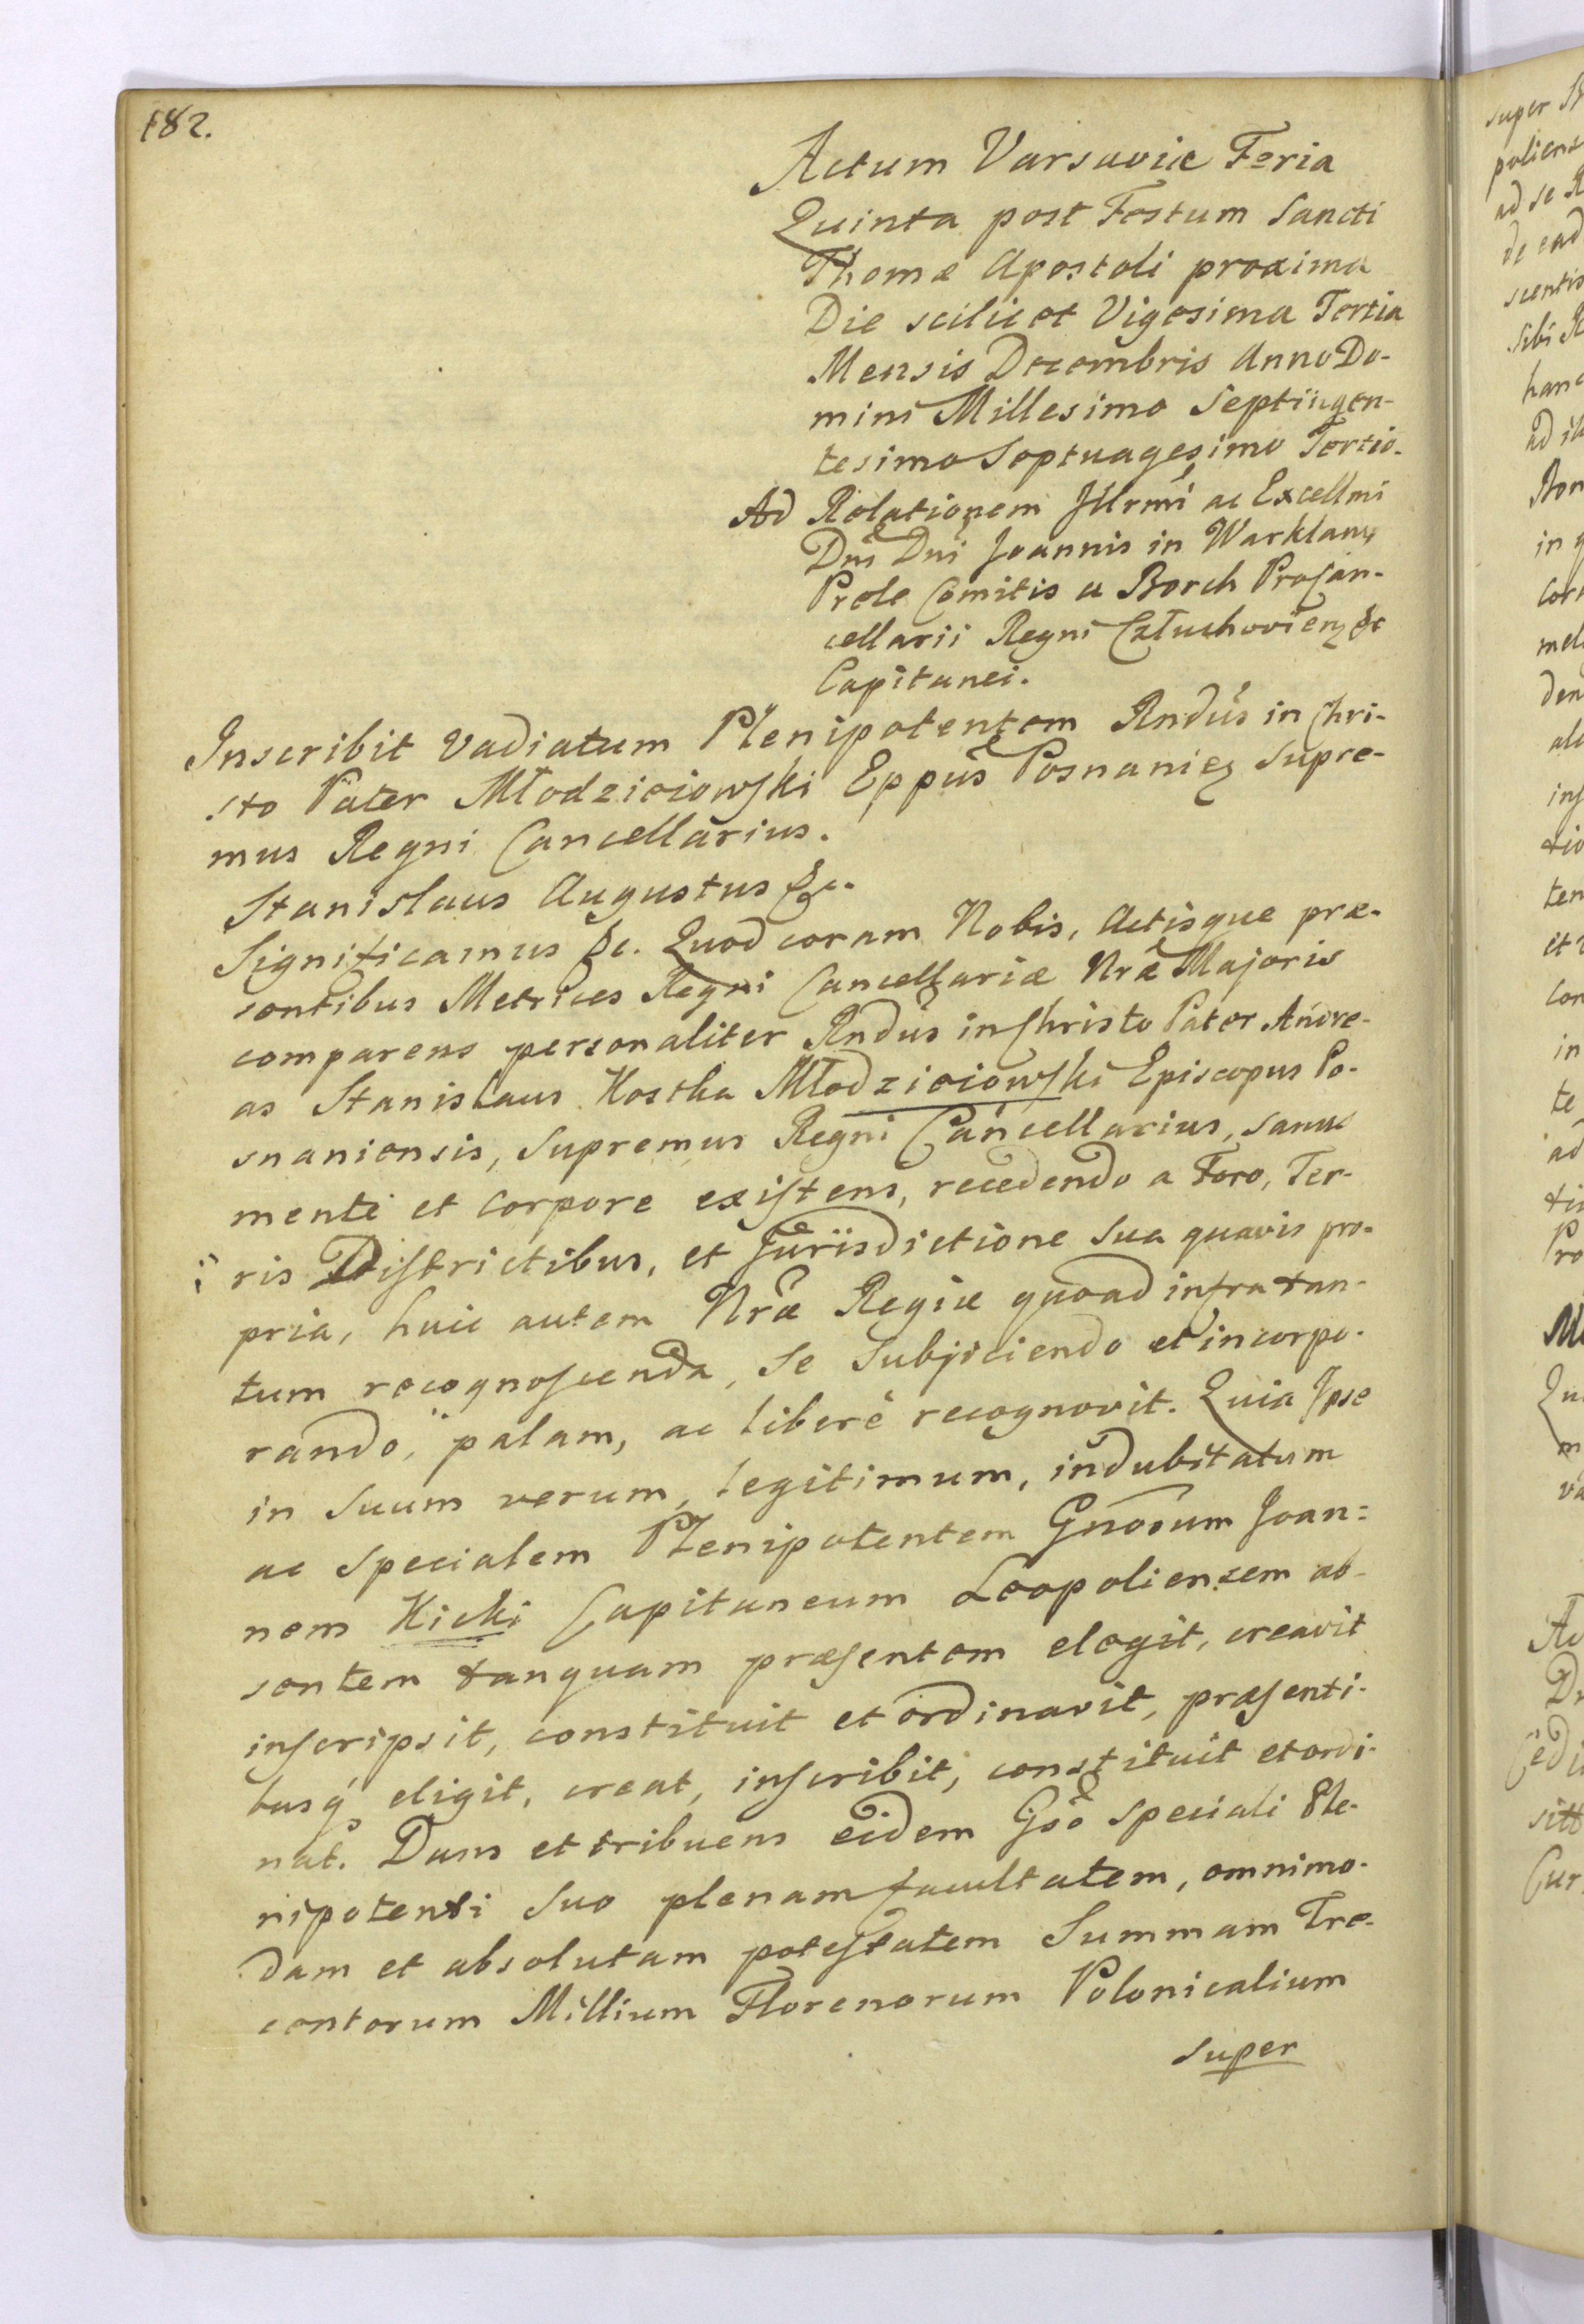 182.
Actum Varsaviæ Feria
Quinta post Festum Sancti
Thomæ Apostoli proxima
Die scilicet Vigesima Tertia
Mensis Decembris Anno Do-
mini Millesimo Septingen-
tesimo Septuagesimo Tertio.
Ad Relationem Jllrmi ac Excellmi
Dni Dni Joannis in Warklany
Prele Comitis a Borch Procan-
cellarii Regni Człuchovien &c
Capitanei.
Inscribit vadiatum Plenipotentem Rndus in Chri-
sto Pater Młodzieiowski Eppus Posnanien Supre-
mus Regni Cancellarius.
Stanislaus Augustus &c.
Significamus &c. Quod coram Nobis, Actisque præ-
sentibus Metrices Regni Cancellariæ Nræ Majoris
comparens personaliter Rndus in Christo Pater Andre-
as Stanislaus Kostka Młodzieiowski Episcopus Po-
snaniensis, Supremus Regni Cancellarius, sanus
mente et Corpore existens, recedendo a Foro, Ter-
ris Districtibus, et Juriisdictione Sua quavis pro-
pria, huic autem Nræ Regiæ quoad infra tan-
tum recognoscenda, Se Subjiciendo et incorpo-
rando, palam, ac liberè recognovit. Quia Jpse
in Suum verum, legitimum, indubitatum
ac Specialem Plenipotentem Gnosum Joan=
nem Kicki Capitaneum Leopoliensem ab-
sentem tanquam præsentem elegit, creavit
inscripsit, constituit et ordinavit, præsenti-
busq́ eligit, creat, inscribit, constituit et ordi-
nat. Dans et tribuens eidem Gso Speciali Ple-
nipotenti Suo plenam facultatem, omnimo-
dam et absolutam potestatem Summam Tre-
centorum Millium Florenorum Polonicalium
super